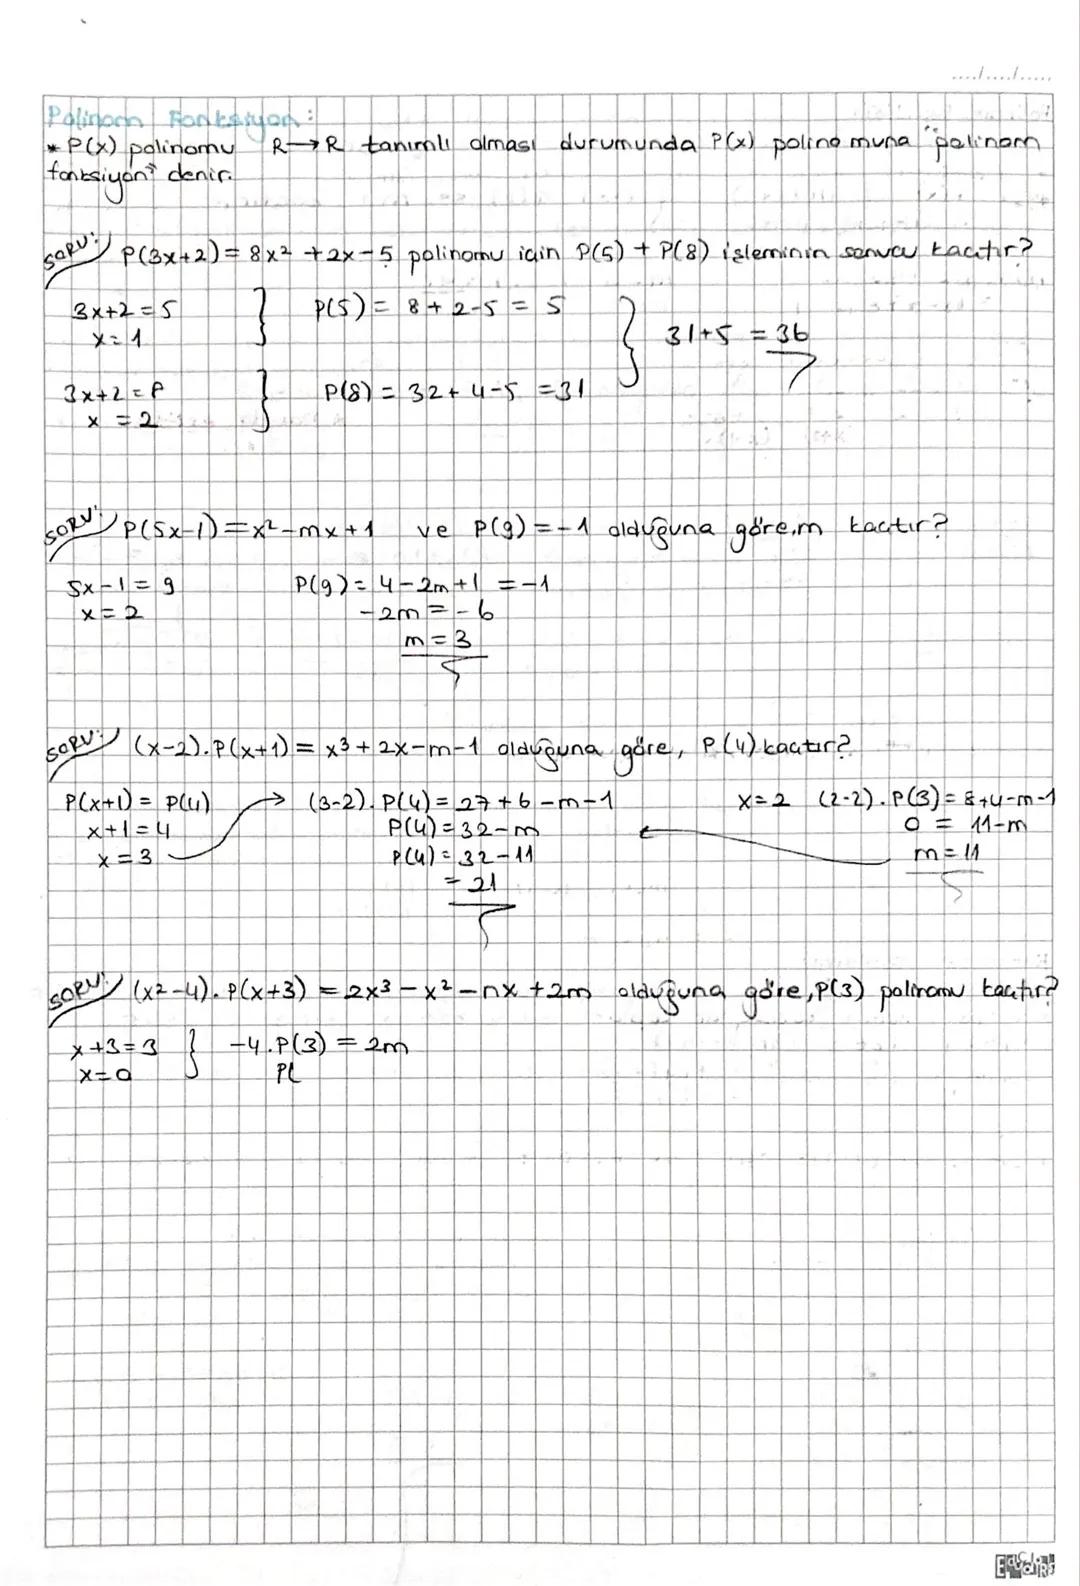 ..../..../.....
Polinom Fonksiyon:
* P(x) polinomu R→R tanımlı olması durumunda P(x) polinomuna "polinom
fonksiyon" denir.
SORU: P(3x+2) = 8x² + 2x - 5 polinomu için P(5) + P(8) işleminin sonucu kaçtır?
3x+2=5 } P(5) = 8+2-5 = 5
x=1
} 31+5 = 36
3x+2=8 } P(8) = 32+4-5 = 31
x=2
SORU: P(5x-1) = x² - mx + 1 ve P(9) = -1 olduğuna göre, m kaçtır?
5x-1=9 P(9) = 4-2m+1 = -1
x=2 -2m = -6
m=3
SORU: (x-2).P(x+1) = x³ + 2x - m - 1 olduğuna göre, P(4) kaçtır?
P(x+1) = P(4) → (3-2).P(4) = 27+6-m-1 x=2 (2-2).P(3) = 8+4-m-1
x+1=4 P(4) = 32-m 0 = 11-m
x=3 P(4) = 32-11 m=11
= 21
SORU: (x²-4).P(x+3) = 2x³ - x² - nx + 2m olduğuna göre, P(3) polinomu kaçtır?
x+3=3 } -4.P(3) = 2m
x=0 P(